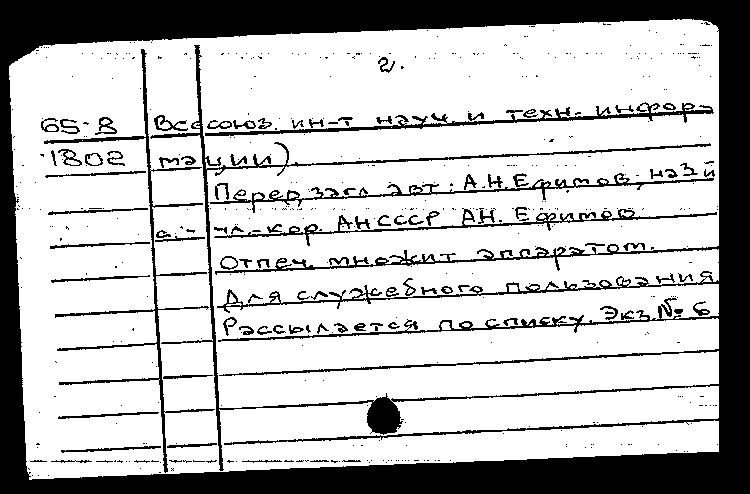 2.
65-8 Всесоюз. ин-т науч. и техн. инфор-
1802 мации).
Перед загл. авт: А.Н.Ефимов;
а: - чл.-кор. АН СССР А.Н. Ефимов
Отпеч. множит аппаратом.
Для служебного пользования.
Рассылается по списку. Экз.№ 6